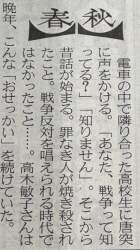 春秋
電車の中で隣り合った高校生に唐突
に声をかける。「あなた、戦争って知
ってる?」「知りません」。そこから
昔話が始まる。罪なき人が焼き殺され
たこと。戦争反対を唱えられる時代で
はなかったこと……。高木敏子さんは
晩年、こんな〝おせっかい〟を続けていた。